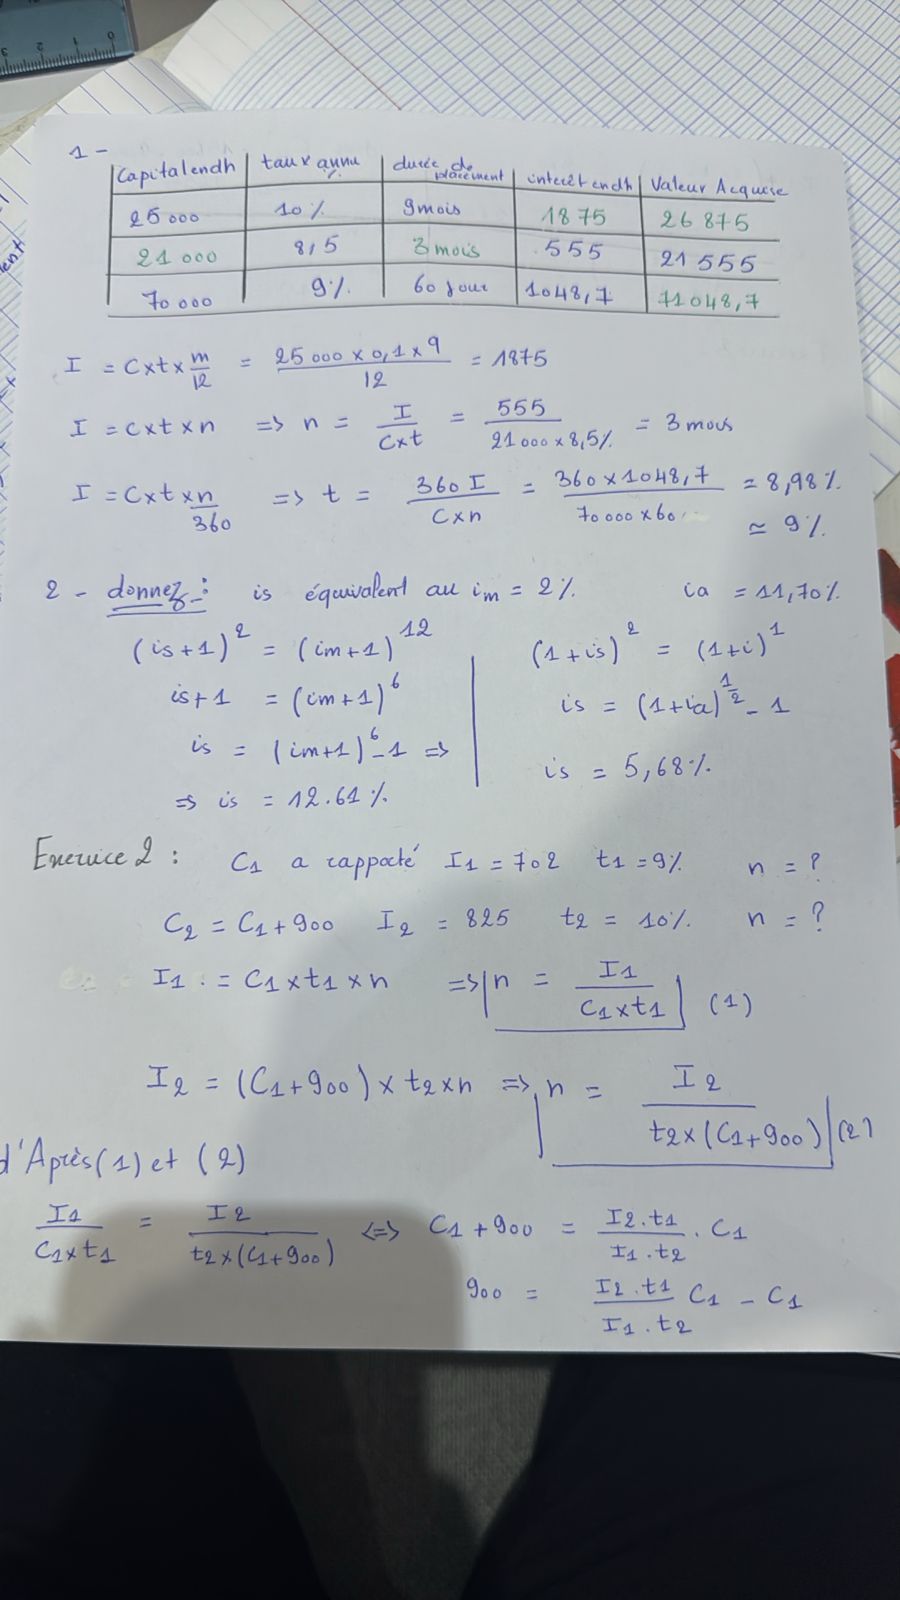 1 -
Capital endh | taux annu % | durée de placement | interêt endh | Valeur Acquise
25 000 | 10 % | 9 mois | 1875 | 26 875
21 000 | 8,5 | 3 mois | 555 | 21 555
70 000 | 9 % | 60 jour | 1048,7 | 71048,7
I = C x t x m/12 = 25 000 x 0,1 x 9 / 12 = 1875
I = C x t x n => n = I / C x t = 555 / 21 000 x 8,5 % = 3 mois
I = C x t x n/360 => t = 360 I / C x n = 360 x 1048,7 / 70 000 x 60 = 8,98 %
≃ 9 %
2 - donnez : is équivalent au im = 2 % ia = 11,70 %
(is+1)² = (im+1)¹² | (1+is)² = (1+i)¹
is+1 = (im+1)⁶ | is = (1+ia)^1/2 - 1
is = (im+1)⁶ - 1 => | is = 5,68 %
=> is = 12.61 %
Exercice 2 : C1 a rappocté I1 = 702 t1 = 9 % n = ?
C2 = C1 + 900 I2 = 825 t2 = 10 % n = ?
I1 = C1 x t1 x n => n = I1 / C1 x t1 (1)
I2 = (C1 + 900) x t2 x n => n = I2 / t2 x (C1 + 900) (2)
d'Après (1) et (2)
I1 / C1 x t1 = I2 / t2 x (C1 + 900) <=> C1 + 900 = I2 . t1 / I1 . t2 . C1
900 = I2 . t1 / I1 . t2 C1 - C1